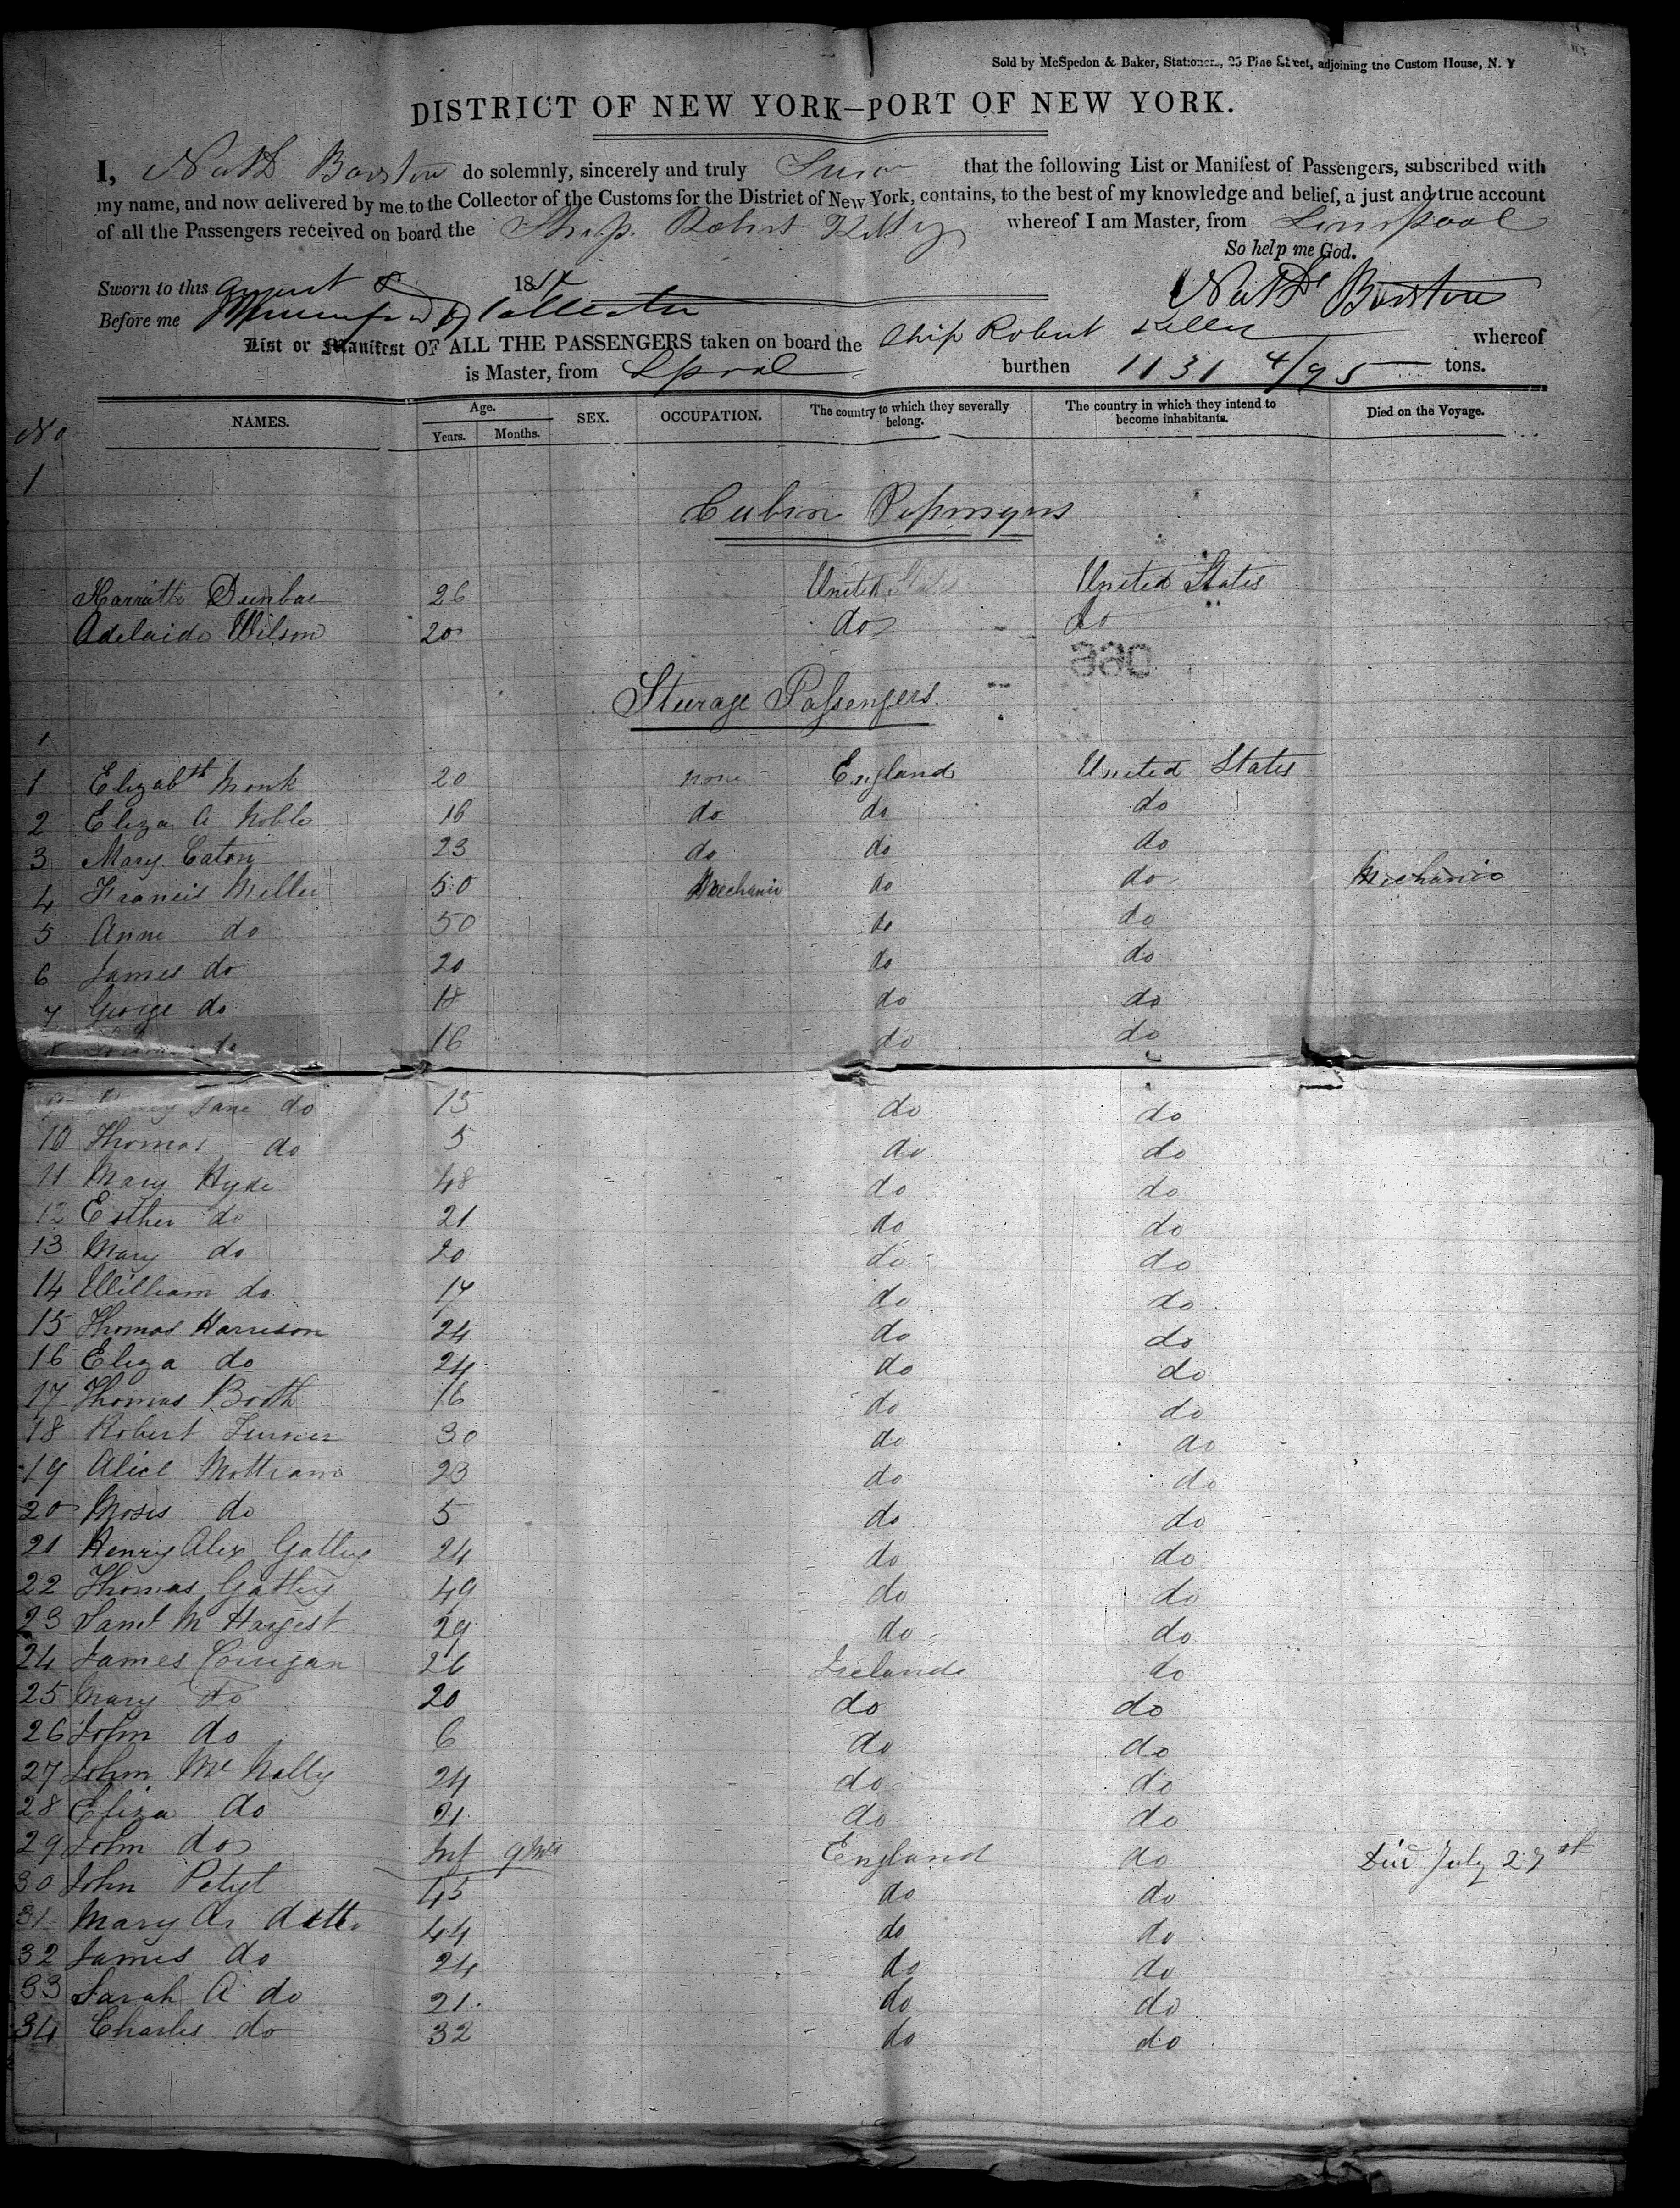 Sold by McSpedon & Baker, Stationers, 25 Pine Street, adjoining the Custom House, N. Y
DISTRICT OF NEW YORK—PORT OF NEW YORK.
I, Nath Barstow do solemnly, sincerely and truly Swear that the following List or Manifest of Passengers, subscribed with
my name, and now delivered by me to the Collector of the Customs for the District of New York, contains, to the best of my knowledge and belief, a just and true account
of all the Passengers received on board the Ship Robert Kelly whereof I am Master, from Liverpool
So help me God.
Sworn to this August 8 18 Nath Barstow
Before me
List or Manifest OF ALL THE PASSENGERS taken on board the Ship Robert Kelly whereof
is Master, from Lpool burthen 1131 4/95 tons.
No NAMES. Age. Years. Months. SEX. OCCUPATION. The country to which they severally belong. The country in which they intend to become inhabitants. Died on the Voyage.
1
Cabin Passengers
Harriette Dunbar 26 United States United States
Adelaide Wilson 20 do do
Steerage Passengers.
1
1 Elizabth Monk 20 none England United States
2 Eliza A Noble 16 do do do
3 Mary Eaton 23 do do do
4 Francis Miller 50 Mechanic do do Mechanic
5 Anne do 50 do do
6 James do 20 do do
7 George do 18 do do
8 do 16 do do
9 Jane do 15 do do
10 Thomas do 5 do do
11 Mary Hyde 48 do do
12 Esther do 21 do do
13 Mary do 20 do do
14 William do 14 do do
15 Thomas Harrison 24 do do
16 Eliza do 24 do do
17 Thomas Booth 16 do do
18 Robert Turner 30 do do
19 Alice Mottram 23 do do
20 Moses do 5 do do
21 Henry Alex Gatley 24 do do
22 Thomas Gatley 49 do do
23 Saml M Hargest 29 do do
24 James Corrigan 26 Ireland do
25 Mary do 20 do do
26 John do 6 do do
27 John McNally 24 do do
28 Eliza do 21 do do
29 John do Inf 9 Mts England do Died July 27th
30 John Petyt 45 do do
31 Mary An ditto 44 do do
32 James do 24 do do
33 Sarah A do 21 do do
34 Charles do 32 do do